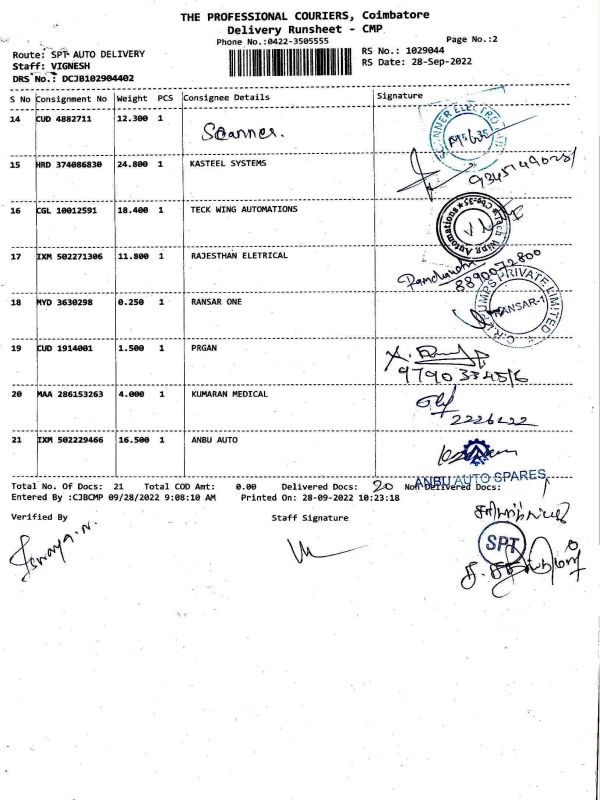 THE PROFESSIONAL COURIERS, Coimbatore
Delivery Runsheet - CMP
Phone No.:0422-3505555
Page No.:2
Route: SPT AUTO DELIVERY
RS No.: 1029044
Staff: VIGNESH
RS Date: 28-Sep-2022
DRS No.: DCJB102904402
S No Consignment No Weight PCS Consignee Details Signature
14 CUD 4882711 12.300 1 Scanner.
15 HRD 374086830 24.800 1 KASTEEL SYSTEMS
16 CGL 10012591 18.400 1 TECK WING AUTOMATIONS
17 IXM 502271306 11.800 1 RAJESTHAN ELETRICAL
8890072800
18 MYD 3630298 0.250 1 RANSAR ONE
RANSAR-1
19 CUD 1914001 1.500 1 PRGAN
20 MAA 286153263 4.000 1 KUMARAN MEDICAL
21 IXM 502229466 16.500 1 ANBU AUTO
ANBU AUTO SPARES
Total No. Of Docs: 21 Total COD Amt: 0.00 Delivered Docs: 20 Non Delivered Docs:
Entered By :CJBCMP 09/28/2022 9:08:10 AM Printed On: 28-09-2022 10:23:18
Verified By Staff Signature
SPT